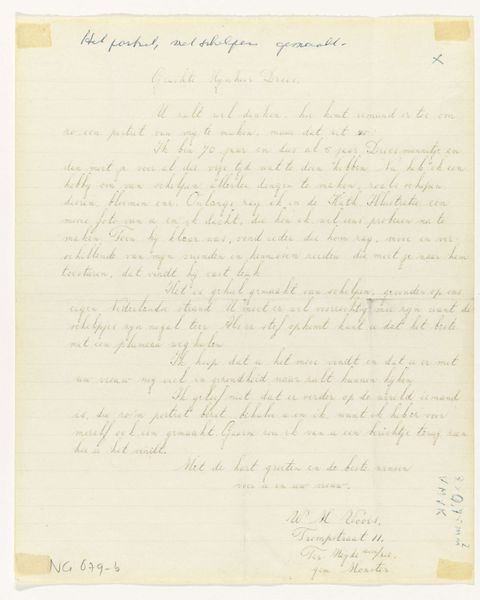 Het portret, met schelpen gemaakt.
x
Geachte Mijnheer Drees,
U zult wel denken, hoe komt iemand er toe om
zo een portret van mij te maken, maar dat zit zo.
Ik ben 70 jaar en dus al 5 jaar Drees mannetje en
dan moet je voor al die vrije tijd wat te doen hebben. Nu heb ik een
hobby om van schelpen allerlei dingen te maken, zoals schepen,
dieren, bloemen enz. Onlangs zag ik in de Kath. Illustratie een
mooie foto van u en ik dacht, die kon ik wel eens proberen na te
maken. Toen hij klaar was, vond ieder die hem zag, mooi en ver-
schillende van mijn vrienden en kennissen zeiden die moet je naar hem
toesturen, dat vindt hij vast leuk.
Het is geheel gemaakt van schelpen, gevonden op ons
eigen Nederlandse strand. U moet er wel voorzichtig mee zijn want de
schelpjes zijn nogal teer. Als er stof op komt kunt u dat het beste
met een plumeau weghalen.
Ik hoop dat u het mooi vindt en dat u er met
uw vrouw nog veel in gezondheid naar zult kunnen kijken.
Ik geloof niet dat er verder op de wereld iemand
is, die zo'n portret bezit, behalve u en ik, want ik heb er voor
mezelf ook een gemaakt. Gaarne zou ik van u een berichtje terug zien
hoe u het vindt.
Met de hart. groeten en de beste wensen
voor u en uw vrouw.
W. M.
Trompstraat 11.
Ter Heyde aan zee.
gem Monster
NG 679-b